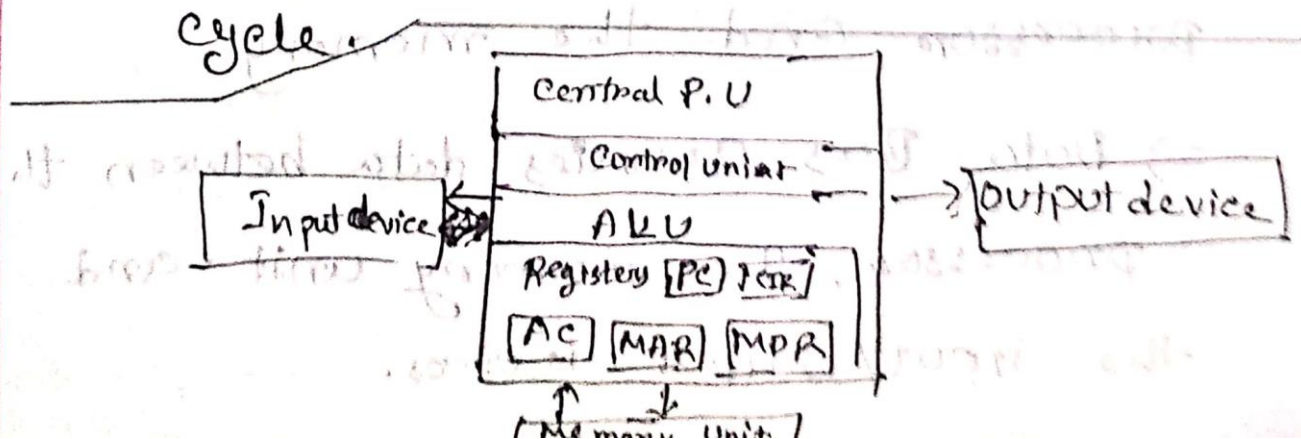 cycle.
Central P.U
Control uniar
Input device
ALU
Output device
Registers [PC] [CIR]
[AC] [MAR] [MDR]
Memory Unit